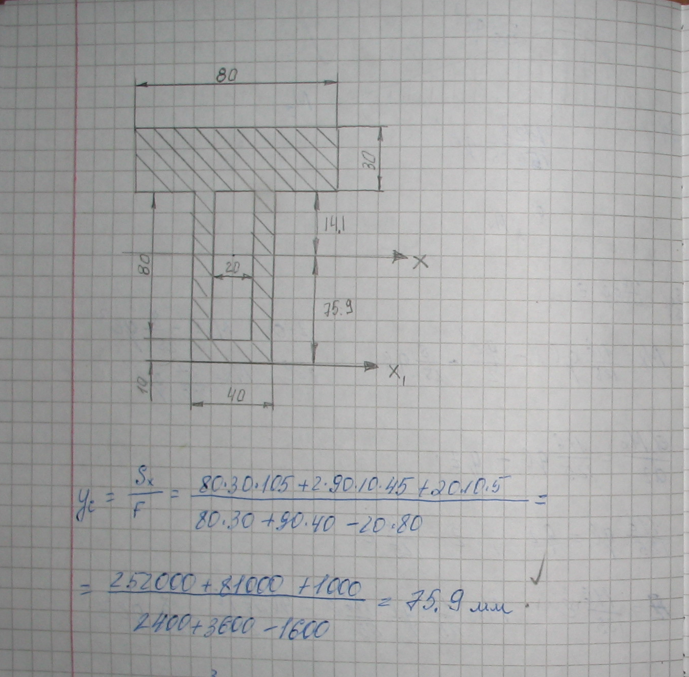 80
30
14.1
X
20
80
75.9
X₁
10
40
y_c = Sₓ/F = (80·30·105 + 2·90·10·45 + 20·10·5)/(80·30 + 90·40 − 20·80) =
= (252000 + 81000 + 1000)/(2400 + 3600 − 1600) = 75.9 мм.